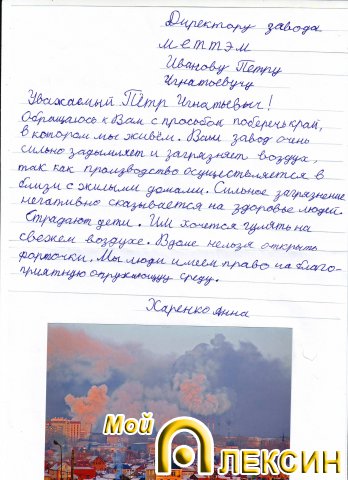 Директору завода
МЕТТЭМ
Иванову Петру
Игнатьевучу
Уважаемый Пётр Игнатьевыч!
Обращаюсь к Вам с просьбой поберечь край,
в котором мы живём. Ваш завод очень
сильно задымляет и загрязняет воздух,
так как производство осуществляется в
близи с жилыми домами. Сильное загрязнение
негативно сказывается на здоровье людей.
Страдают дети. Им хочется гулять на
свежем воздухе. Вдоме нельзя открыть
форточки. Мы люди имеем право на благо-
приятную окружающую среду.
Харенко Анна
Мой
Алексин